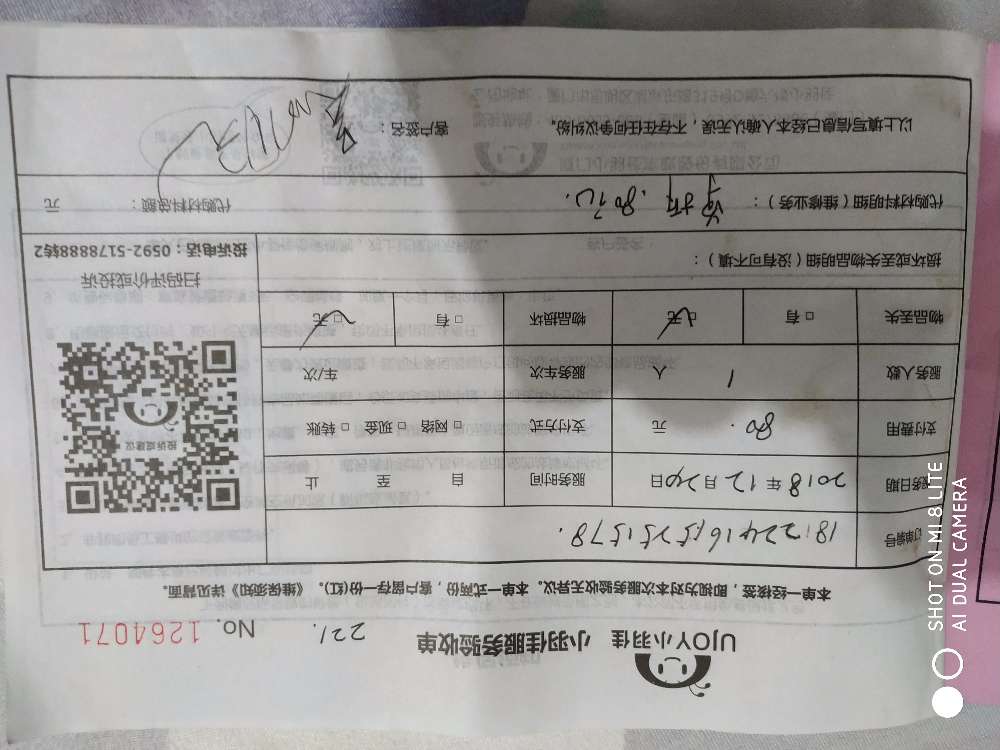 UJOY小羽佳 小羽佳服务验收单 221. No. 1264071
本单一经接签，即视为对本次服务验收无异议。本单一式两份，客户留存一份(红)。《维保须知》详见背面。
订单编号
服务日期 2018年12月24日 服务时间 自 至 止
支付费用 80. 元 支付方式 □ 网络 □ 现金 □ 转账
服务人数 1 人 服务车次 车/次
物品丢失 □ 有 □ 无 物品损坏 □ 有 □ 无
损坏或丢失物品明细（没有可不填）：
投诉或建议
扫码评价或投诉
投诉电话：0592-5178888转2
代购材料明细（维修业务）： 80元. 代购材料总额： 元
以上填写信息已经本人确认无误，不存在任何争议纠纷。 客户签名：
SHOT ON MI 8 LITE
AI DUAL CAMERA